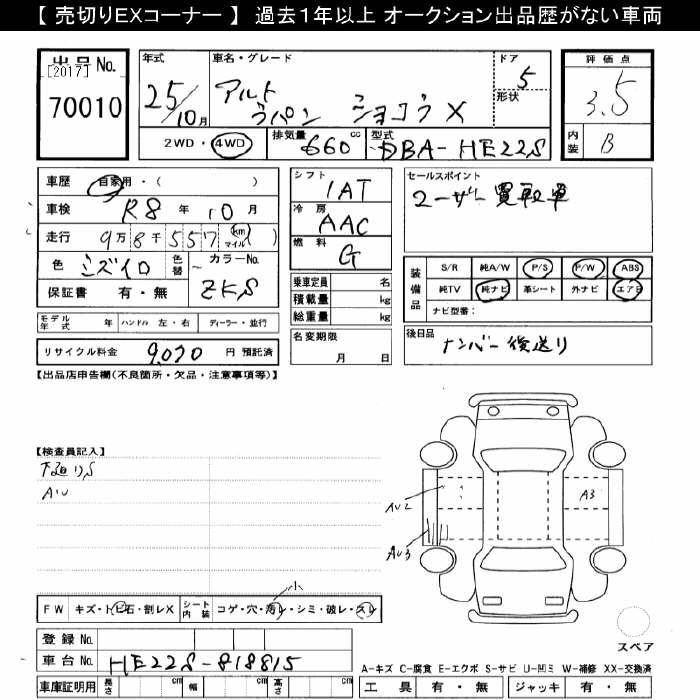 【 売切りEXコーナー 】 過去1年以上 オークション出品歴がない車両
出品No.
[2017]
70010
年式
25/10月
車名・グレード
アルト
ラパン ショコラX
ドア
5
形状
2WD・4WD
排気量
660 cc
型式
DBA-HE22S
評価点
3.5
内装
B
車歴 自家用・( )
車検 R8 年 10 月
走行 9万8千557 km マイル ( )
色 ミズイロ
色替
カラーNo.
ZKS
保証書 有・無
シフト
IAT
冷房
AAC
燃料
G
乗車定員 名
積載量 kg
総重量 kg
セールスポイント
ユーザー買取車
装備品
S/R 純A/W P/S P/W ABS
純TV 純ナビ 革シート 外ナビ エアB
ナビ型番:
モデル年式 年 ハンドル 左・右 ディーラー・並行
リサイクル料金 9,070 円 預託済
名変期限
月 日
後日品
ナンバー後送り
【出品店申告欄(不良箇所・欠品・注意事項等)】
【検査員記入】
下廻りS
AU
AU2
AU3
A3
小
FW キズ・トビ石・割レX
シート内装 コゲ・穴・汚レ・シミ・破レ・スレ
登録 No.
車台 No. HE22S-818815
車庫証明用 長さ cm 幅 cm 高さ cm
スペア
A-キズ C-腐食 E-エクボ S-サビ U-凹ミ W-補修 XX-交換済
工具 有・無 ジャッキ 有・無